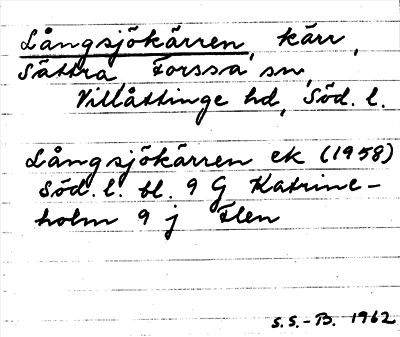 Långsjökärren, kärr,
Sättra, Forssa sn,
Villåttinge hd, Söd. l.
Långsjökärren ek (1958)
Söd. l. bl. 9 G Katrine-
holm 9 j Flen
S.S.-B. 1962